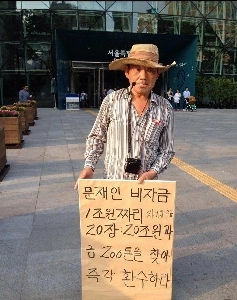 서울특별
문재인 비자금
1조원짜리
20장·20조원과
금 200톤을 찾아
즉각 환수하라